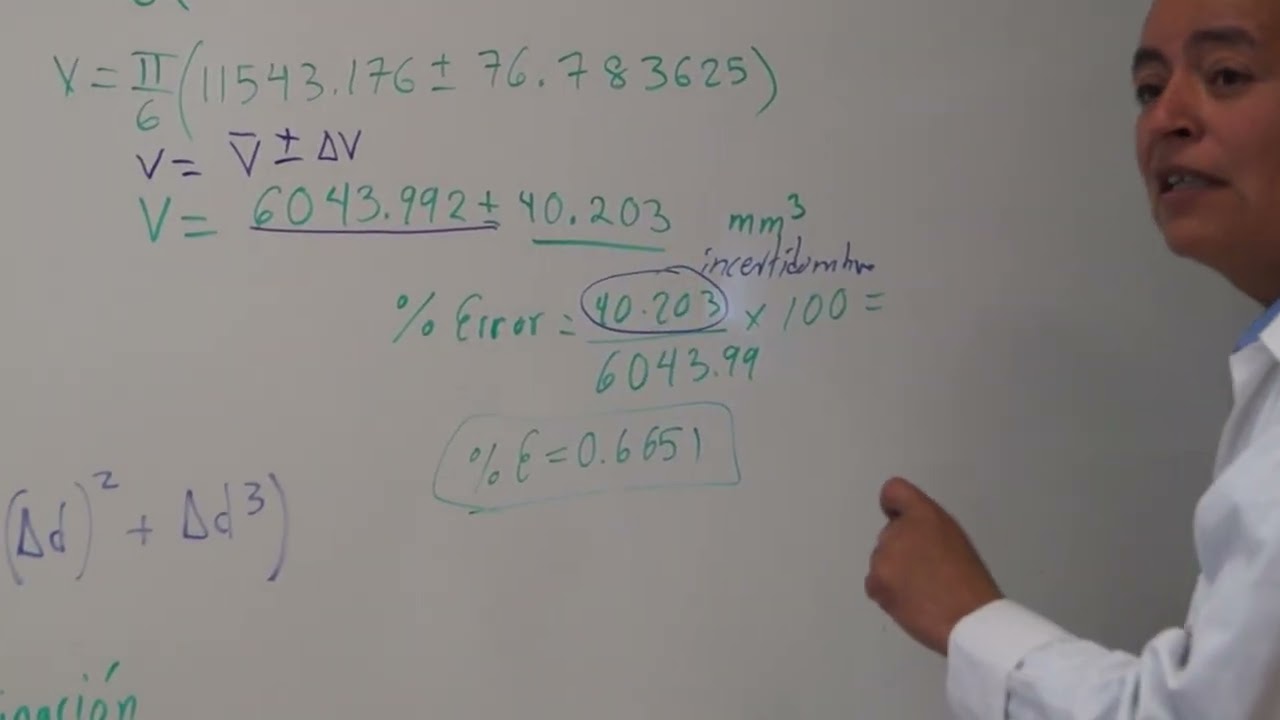 V = π/6 (11543.176 ± 76.783625)
V = V̅ ± ΔV
V = 6043.992 ± 40.203 mm³
incertidumbre
% Error = 40.203/6043.99 x 100 =
% E = 0.6651
(Δd)² + Δd³)
nación